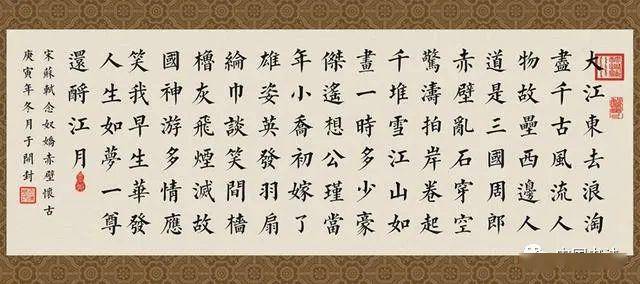 大江東去浪淘
盡千古風流人
物故壘西邊人
道是三國周郎
赤壁亂石穿空
驚濤拍岸卷起
千堆雪江山如
畫一時多少豪
傑遙想公瑾當
年小喬初嫁了
雄姿英發羽扇
綸巾談笑間檣
櫓灰飛煙滅故
國神游多情應
笑我早生華發
人生如夢一尊
還酹江月
宋蘇軾念奴嬌赤壁懷古
庚寅年冬月于開封